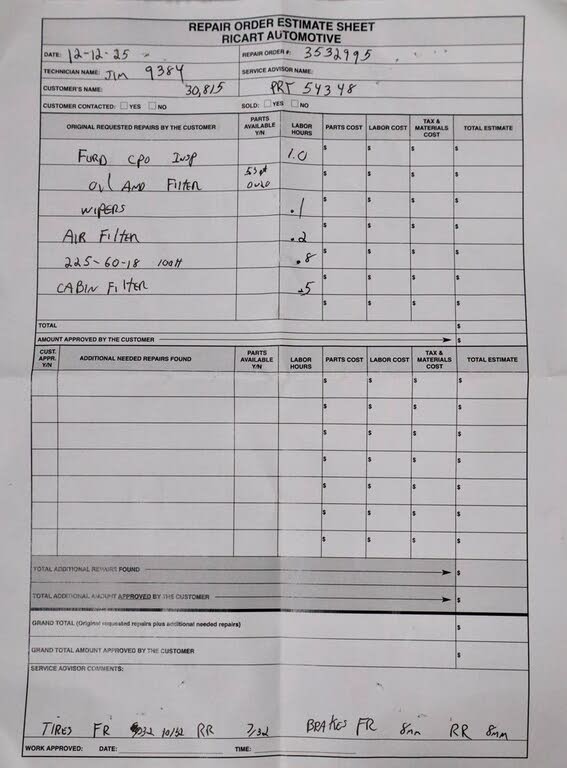 REPAIR ORDER ESTIMATE SHEET
RICART AUTOMOTIVE
DATE: 12-12-25 REPAIR ORDER #: 3532995
TECHNICIAN NAME: JIM 9384 SERVICE ADVISOR NAME:
CUSTOMER'S NAME: 30,815 PRT 54348
CUSTOMER CONTACTED: YES NO SOLD: YES NO
ORIGINAL REQUESTED REPAIRS BY THE CUSTOMER PARTS AVAILABLE Y/N LABOR HOURS PARTS COST LABOR COST TAX & MATERIALS COST TOTAL ESTIMATE
FORD CPO INSP 1.0 $ $ $ $
OIL AND FILTER 0W20 $ $ $ $
WIPERS .1 $ $ $ $
AIR FILTER .2 $ $ $ $
225-60-18 100H .8 $ $ $ $
CABIN FILTER .5 $ $ $ $
$ $ $ $
TOTAL $
AMOUNT APPROVED BY THE CUSTOMER $
CUST. APPR. Y/N ADDITIONAL NEEDED REPAIRS FOUND PARTS AVAILABLE Y/N LABOR HOURS PARTS COST LABOR COST TAX & MATERIALS COST TOTAL ESTIMATE
$ $ $ $
$ $ $ $
$ $ $ $
$ $ $ $
$ $ $ $
$ $ $ $
$ $ $ $
TOTAL ADDITIONAL REPAIRS FOUND $
TOTAL ADDITIONAL AMOUNT APPROVED BY THE CUSTOMER $
GRAND TOTAL (Original requested repairs plus additional needed repairs) $
GRAND TOTAL AMOUNT APPROVED BY THE CUSTOMER $
SERVICE ADVISOR COMMENTS:
TIRES FR 10/32 RR 7/32 BRAKES FR 8mm RR 8mm
WORK APPROVED: DATE: TIME: